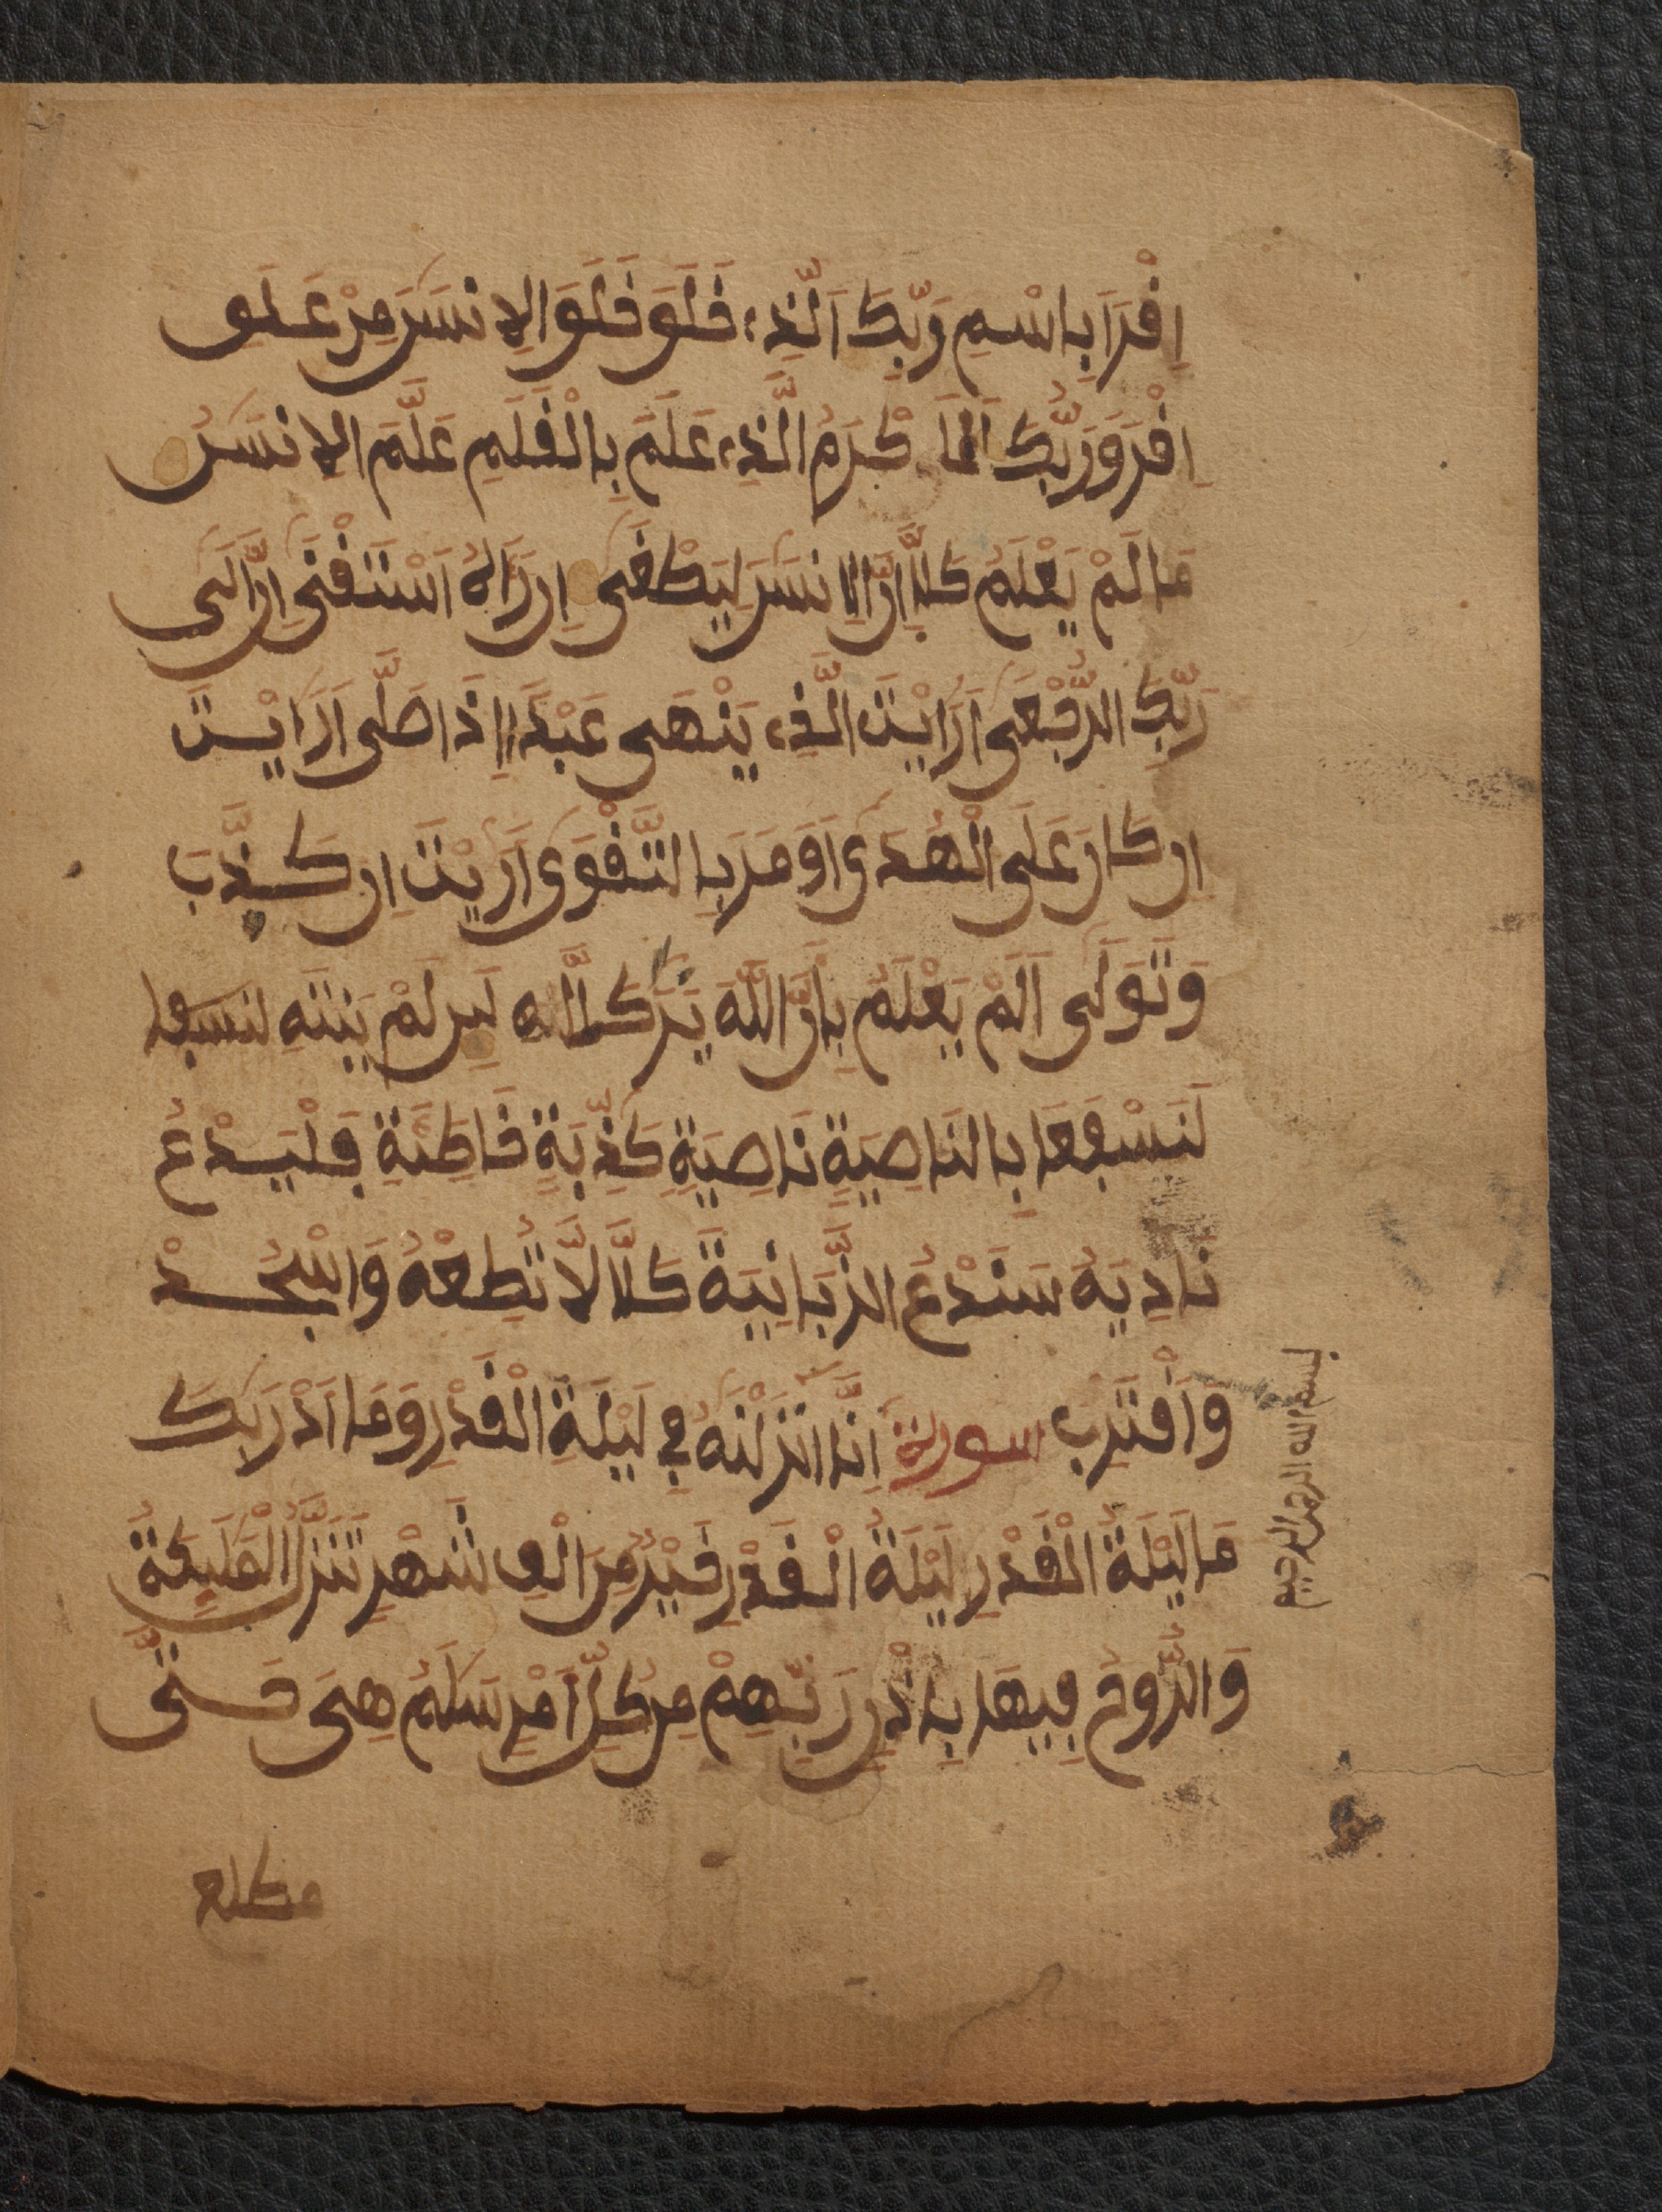 اِقْرَا بِاسْمِ رَبِّكَ الَّذِے خَلَقَ خَلَقَ الاِنسَٰنَ مِنْ عَلَقٍ
اِقْرَ وَرَبُّكَ الَا كْرَمُ الَّذِے عَلَّمَ بِالْقَلَمِ عَلَّمَ الاِنسَٰنَ
مَا لَمْ يَعْلَمْ كَلَّا إِنَّ الاِنسَٰنَ لَيَطْغَىٰ اِن رَّءَاهُ اَسْتَغْنَىٰ اِنَّ اِلَىٰ
رَبِّكَ الرُّجْعَىٰ اَرَايْتَ الَّذِے يَنْهَىٰ عَبْداً اِذَا صَلَّىٰ اَرَايْتَ
اِن كَانَ عَلَى الْهُدَىٰ اَوَ مَرَ بِالتَّقْوَىٰ اَرَيْتَ اِن كَذَّبَ
وَتَوَلَّىٰ اَلَمْ يَعْلَم بِاَنَّ اللَّهَ يَرَىٰ كَلَّا لَئِن لَمْ يَنتَهِ لنسفعا
لَنَسْفَعَا بِالنَاصِيَةِ نَاصِيَةٍ كَٰذِبَةٍ خَاطِئَةٍ فَلْيَدْعُ
نَادِيَهُ سَنَدْعُ الزَّبَانِيَةَ كَلَّا لَا تُطِعْهُ وَاسْجُدْ
وَاَقْتَرِب سورة اِنَّا اَنزَلْنَٰهُ فِے لَيْلَةِ الْقَدْرِ وَمَا اَدْرَيٰكَ
مَا لَيْلَةُ الْقَدْرِ لَيْلَةُ الْقَدْرِ خَيْرٌ مِنَ الْفِ شَهْرٍ تَنَزَّلُ الْمَلَٰٓئِكَةُ
وَالرُّوحُ فِيهَا بِإِذْنِ رَبِّهِمْ مِن كُلِّ اَمْرٍ سَلَٰمٌ هِىَ حَتَّىٰ
مطلع
بسم الله الرحمن الرحيم